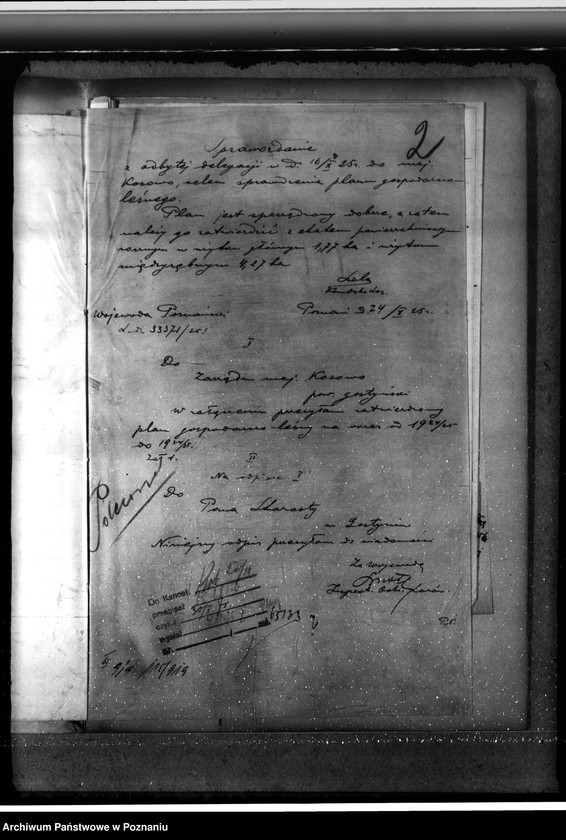 2
Sprawozdanie
z odbytej delegacji w d. 16/X 25r. do maj.
Kosowo, celem sprawdzenia planu gospodarcz.
leśnego.
Plan jest sporządzony dobrze, a zatem
należy go zatwierdzić z etatem powierzchniowym
rocznym w użytku głównym 1,77 ha i użytkiem
międzyrębnym 4,27 ha
Wojewoda Poznański
Poznań d 24/X 25r.
L. dz. 3357/25
I
Do
Zarządu maj. Kosowo
pow. gostyński
W załączeniu przesyłam zatwierdzony
plan gospodarczo leśny na okres od 1924/25
do 19
Zał 1.
II
Na odpisie I
Do
Pana Starosty
w Gostyniu
Niniejszy odpis przesyłam do wiadomości
Za Wojewodę
Polecony
Do Kancel.
przepisał
czyt.
wysłał
65133
Archiwum Państwowe w Poznaniu